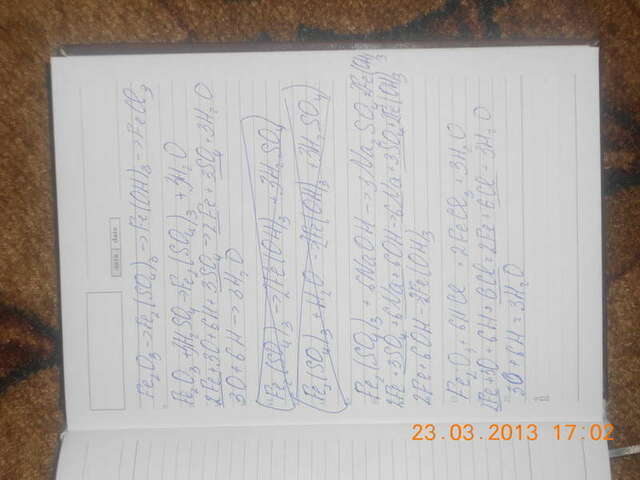 дата date
Fe₂O₃ → Fe₂(SO₄)₃ → Fe(OH)₃ → FeCl₃
Fe₂O₃ + H₂SO₄ → Fe₂(SO₄)₃ + 3H₂O
2Fe + 3O + 6H + 3SO₄ → 2Fe + 3SO₄ + 3H₂O
3O + 6H → 3H₂O
Fe₂(SO₄)₃ → 2Fe(OH)₃ + 3H₂SO₄
Fe₂(SO₄)₃ + H₂O - 2Fe(OH)₃ + 3H₂SO₄
Fe₂(SO₄)₃ + 6NaOH → 3Na₂SO₄ + 2Fe(OH)₃
2Fe + 3SO₄ + 6Na + 6OH → 6Na + 3SO₄ + 2Fe(OH)₃
2Fe + 6OH - 2Fe(OH)₃
Fe₂O₃ + 6HCl - 2FeCl₃ + 3H₂O
2Fe + 3O + 6H + 6Cl = 2Fe + 6Cl - 3H₂O
3O + 6H = 3H₂O
23.03.2013 17:02